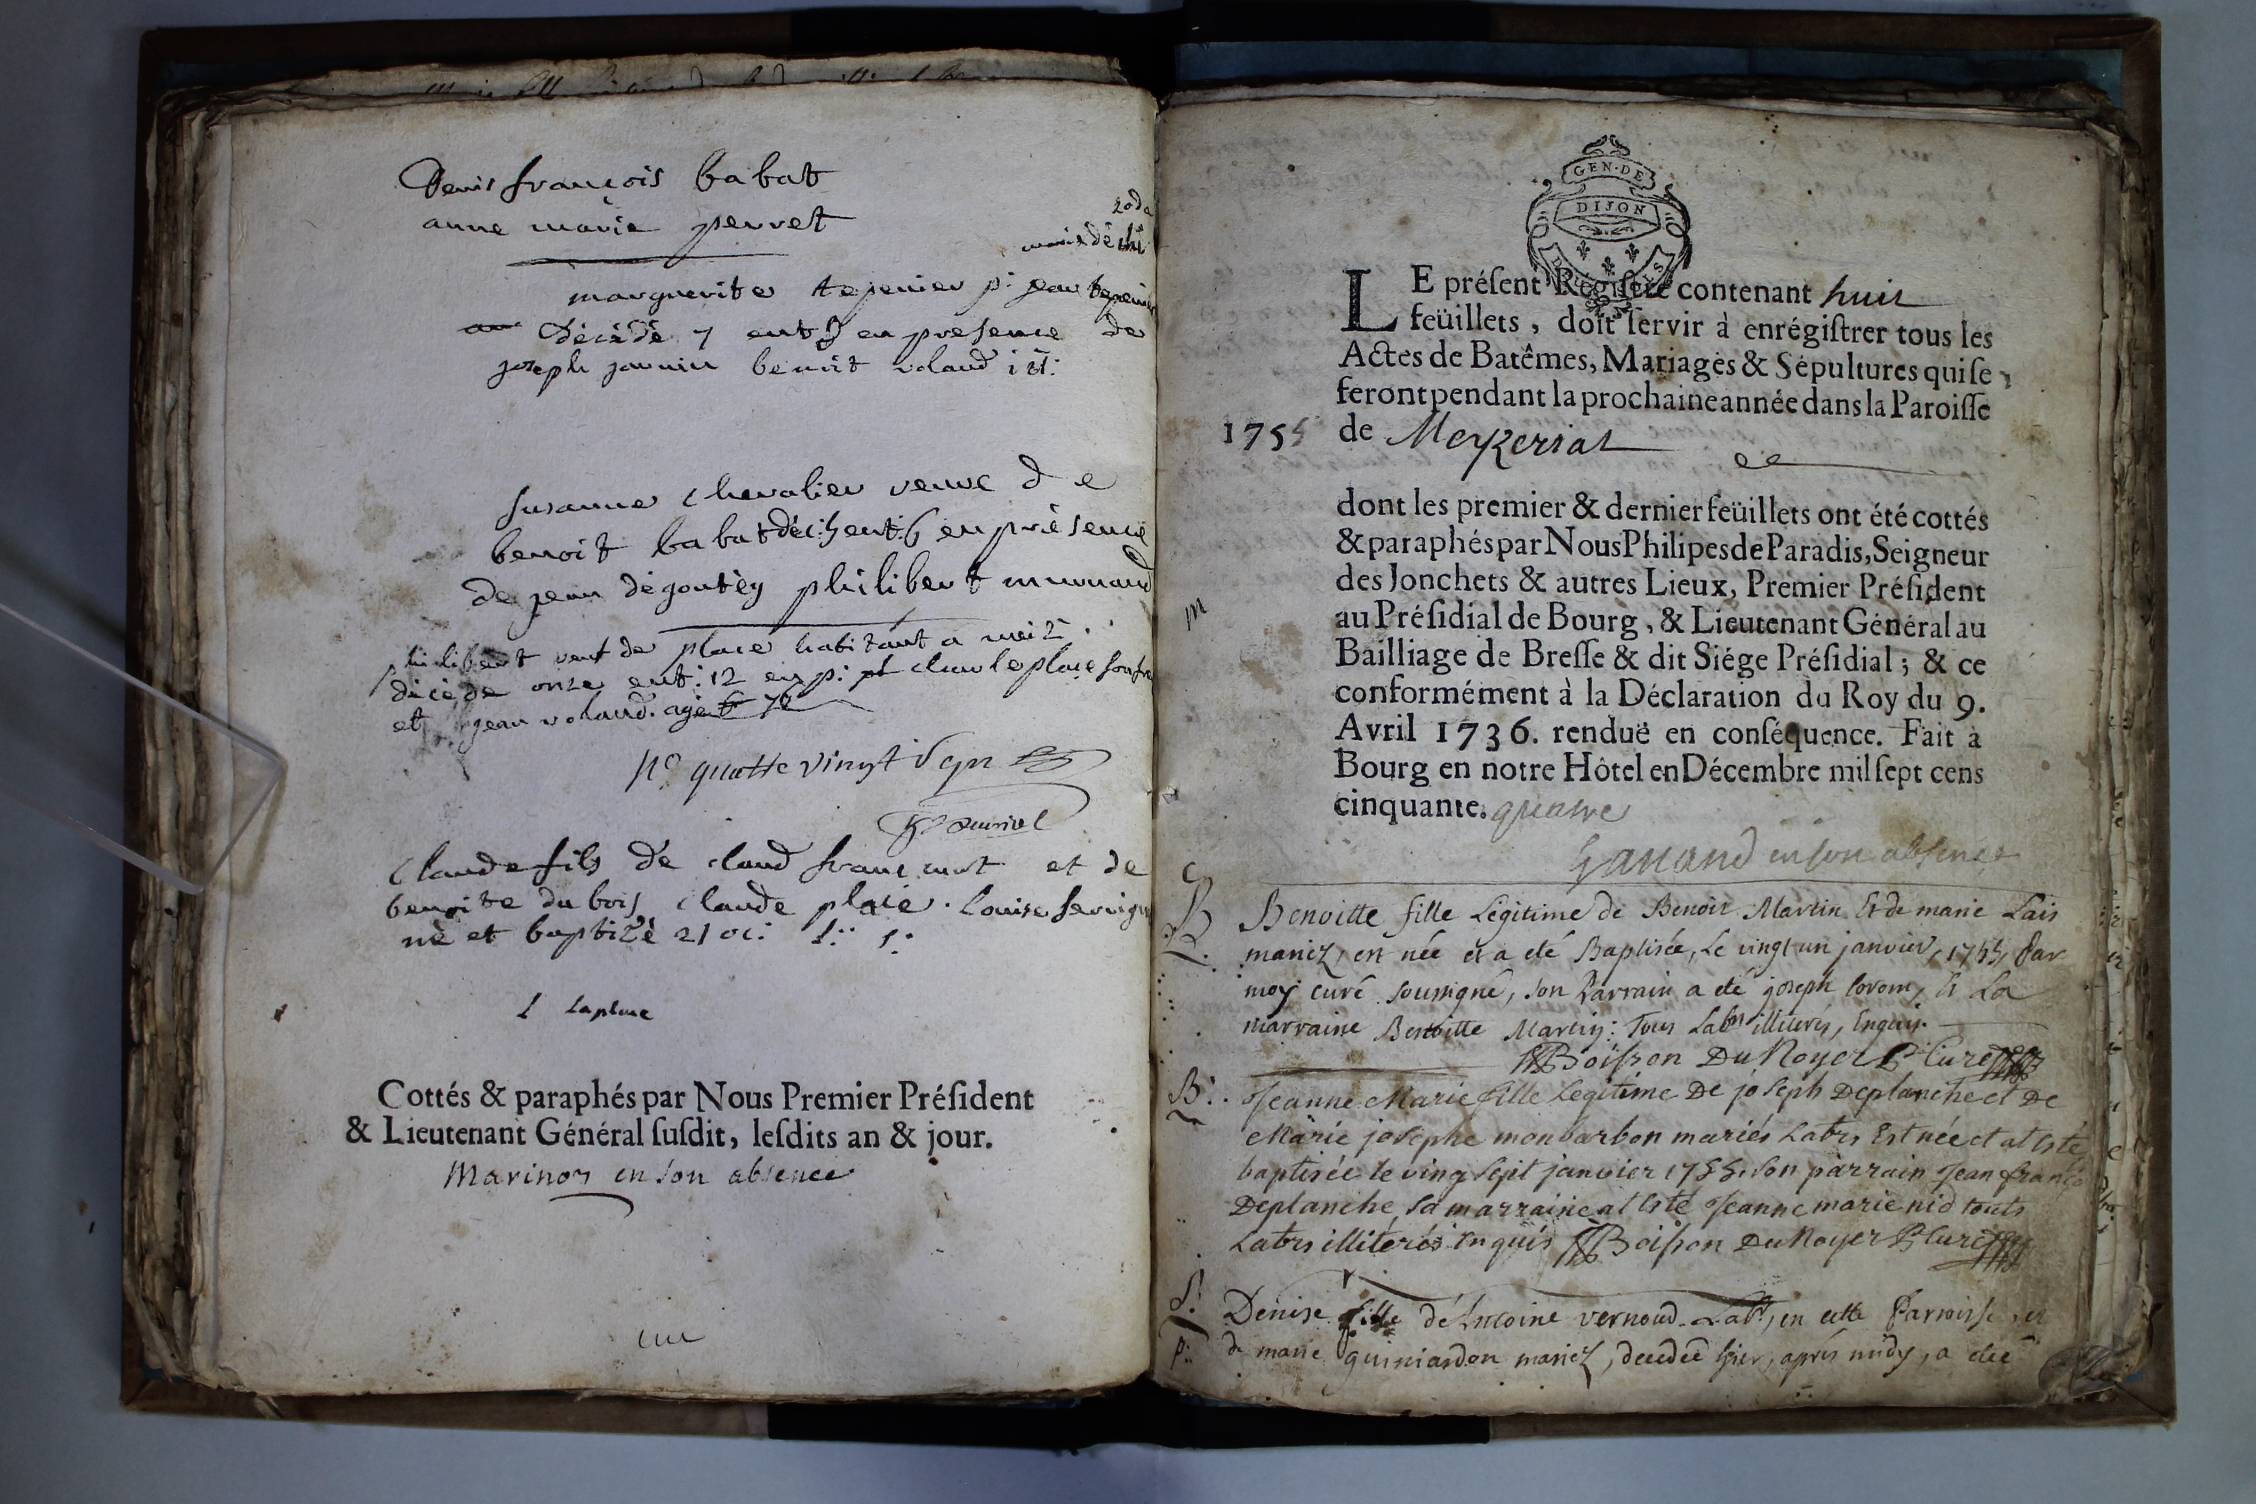 Denis françois babat
anne marie perret
marguerite tepenier p: jean tepenier
décédé 7 ent 8 en presence de
joseph jannin benoit voland ill:
susanne chevalier veuve de
benoit babat déc: 5 ent: 6 en présence
de jean dégoutey philibert
philibert veuf de place habitant a
décéde onze ent: 12 en p: claude place son
et jean voland. agé
N° quatre vingt
Claude fils de claud franc et de
benoite du bois claude place. Louise
né et baptizé 21
L Laplace
Cottés & paraphés par Nous Premier Préſident
& Lieutenant Général ſuſdit, leſdits an & jour.
Marinos en son absence
GEN·DE
DIJON
LE préſent Regiſtre contenant huit
feüillets, doit ſervir à enrégiſtrer tous les
Actes de Batêmes, Mariages & Sépultures qui ſe
feront pendant la prochaine année dans la Paroiſſe
1755 de Mezeriat
dont les premier & dernier feüillets ont été cottés
& paraphés par Nous Philipes de Paradis, Seigneur
des Jonchets & autres Lieux, Premier Préſident
au Préſidial de Bourg, & Lieutenant Général au
Bailliage de Breſſe & dit Siége Préſidial; & ce
conformément à la Déclaration du Roy du 9.
Avril 1736. renduë en conſéquence. Fait à
Bourg en notre Hôtel en Décembre mil ſept cens
cinquante. quatre
en son absence
B Benoitte fille Légitime de Benoit Martin Et de marie Lais
mariez, est née et a été Baptisée, Le vingt un janvier, 1755, Par
moy curé soussigné, son Parrain a été joseph & La
marraine Benoitte Martin: Tous Labrs illiterés, Enquis.
Boisson Du Noyer Ptre Curé
B: Jeanne Marie fille Legitime De joseph Deplanche et De
Marie josephe monbarbon mariés Labrs Est née et at esté
baptisée le ving sept janvier 1755. son parrain Jean françois
Deplanche, sa marraine at esté Jeanne marie nid touts
Labrs illitérés Enquis Boisson Du Noyer Ptre Curé
S: Denise fille de Antoine vernoud Labr, en cette Parroisse, et
p: de marie guiniardon mariez, decedée hier, aprés midy, a été